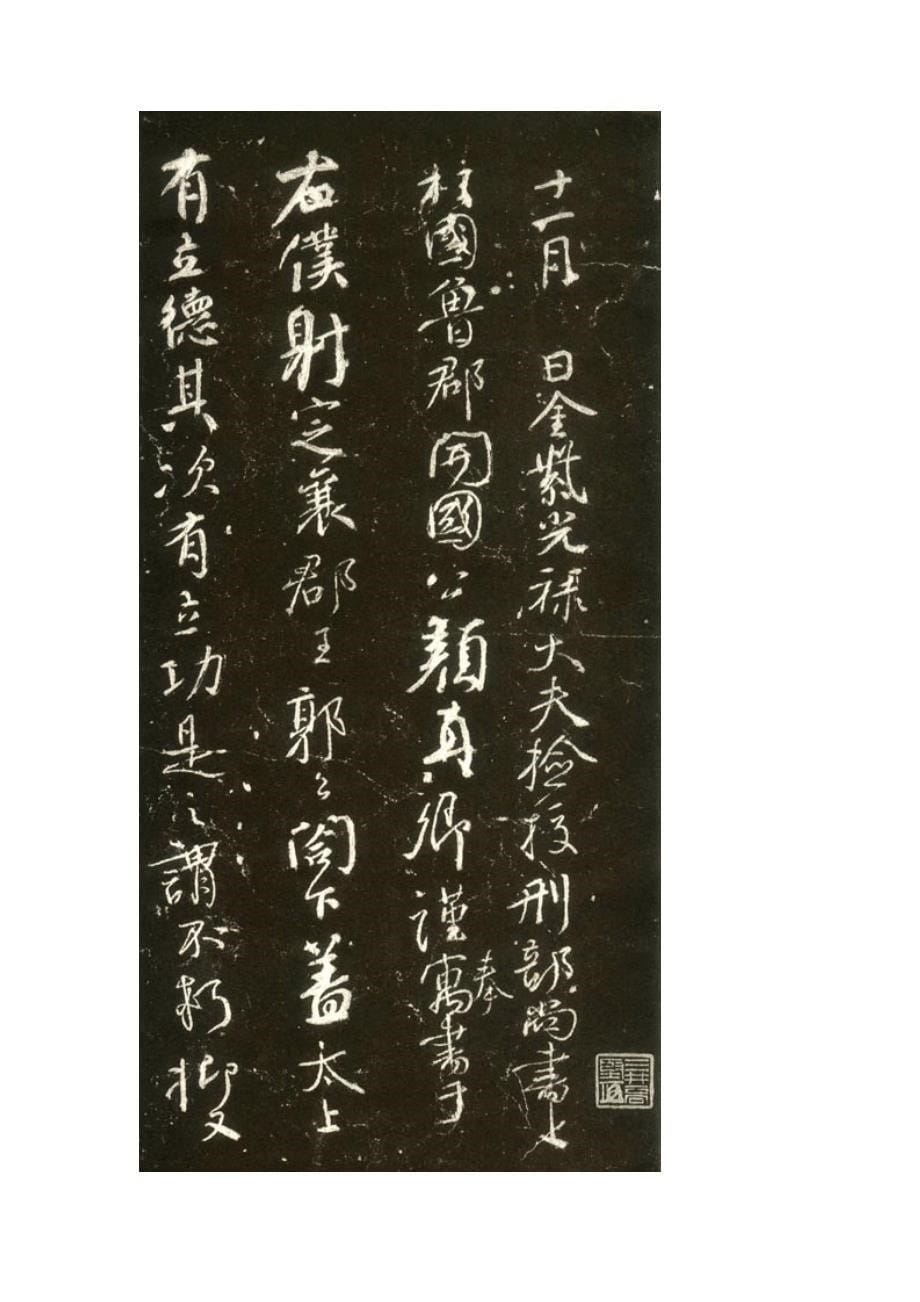 十一月　日金紫光祿大夫檢校刑部尚書上
柱國魯郡開國公顏真卿謹奉寓書于
右僕射定襄郡王郭公閤下蓋太上
有立德其次有立功是之謂不朽抑又